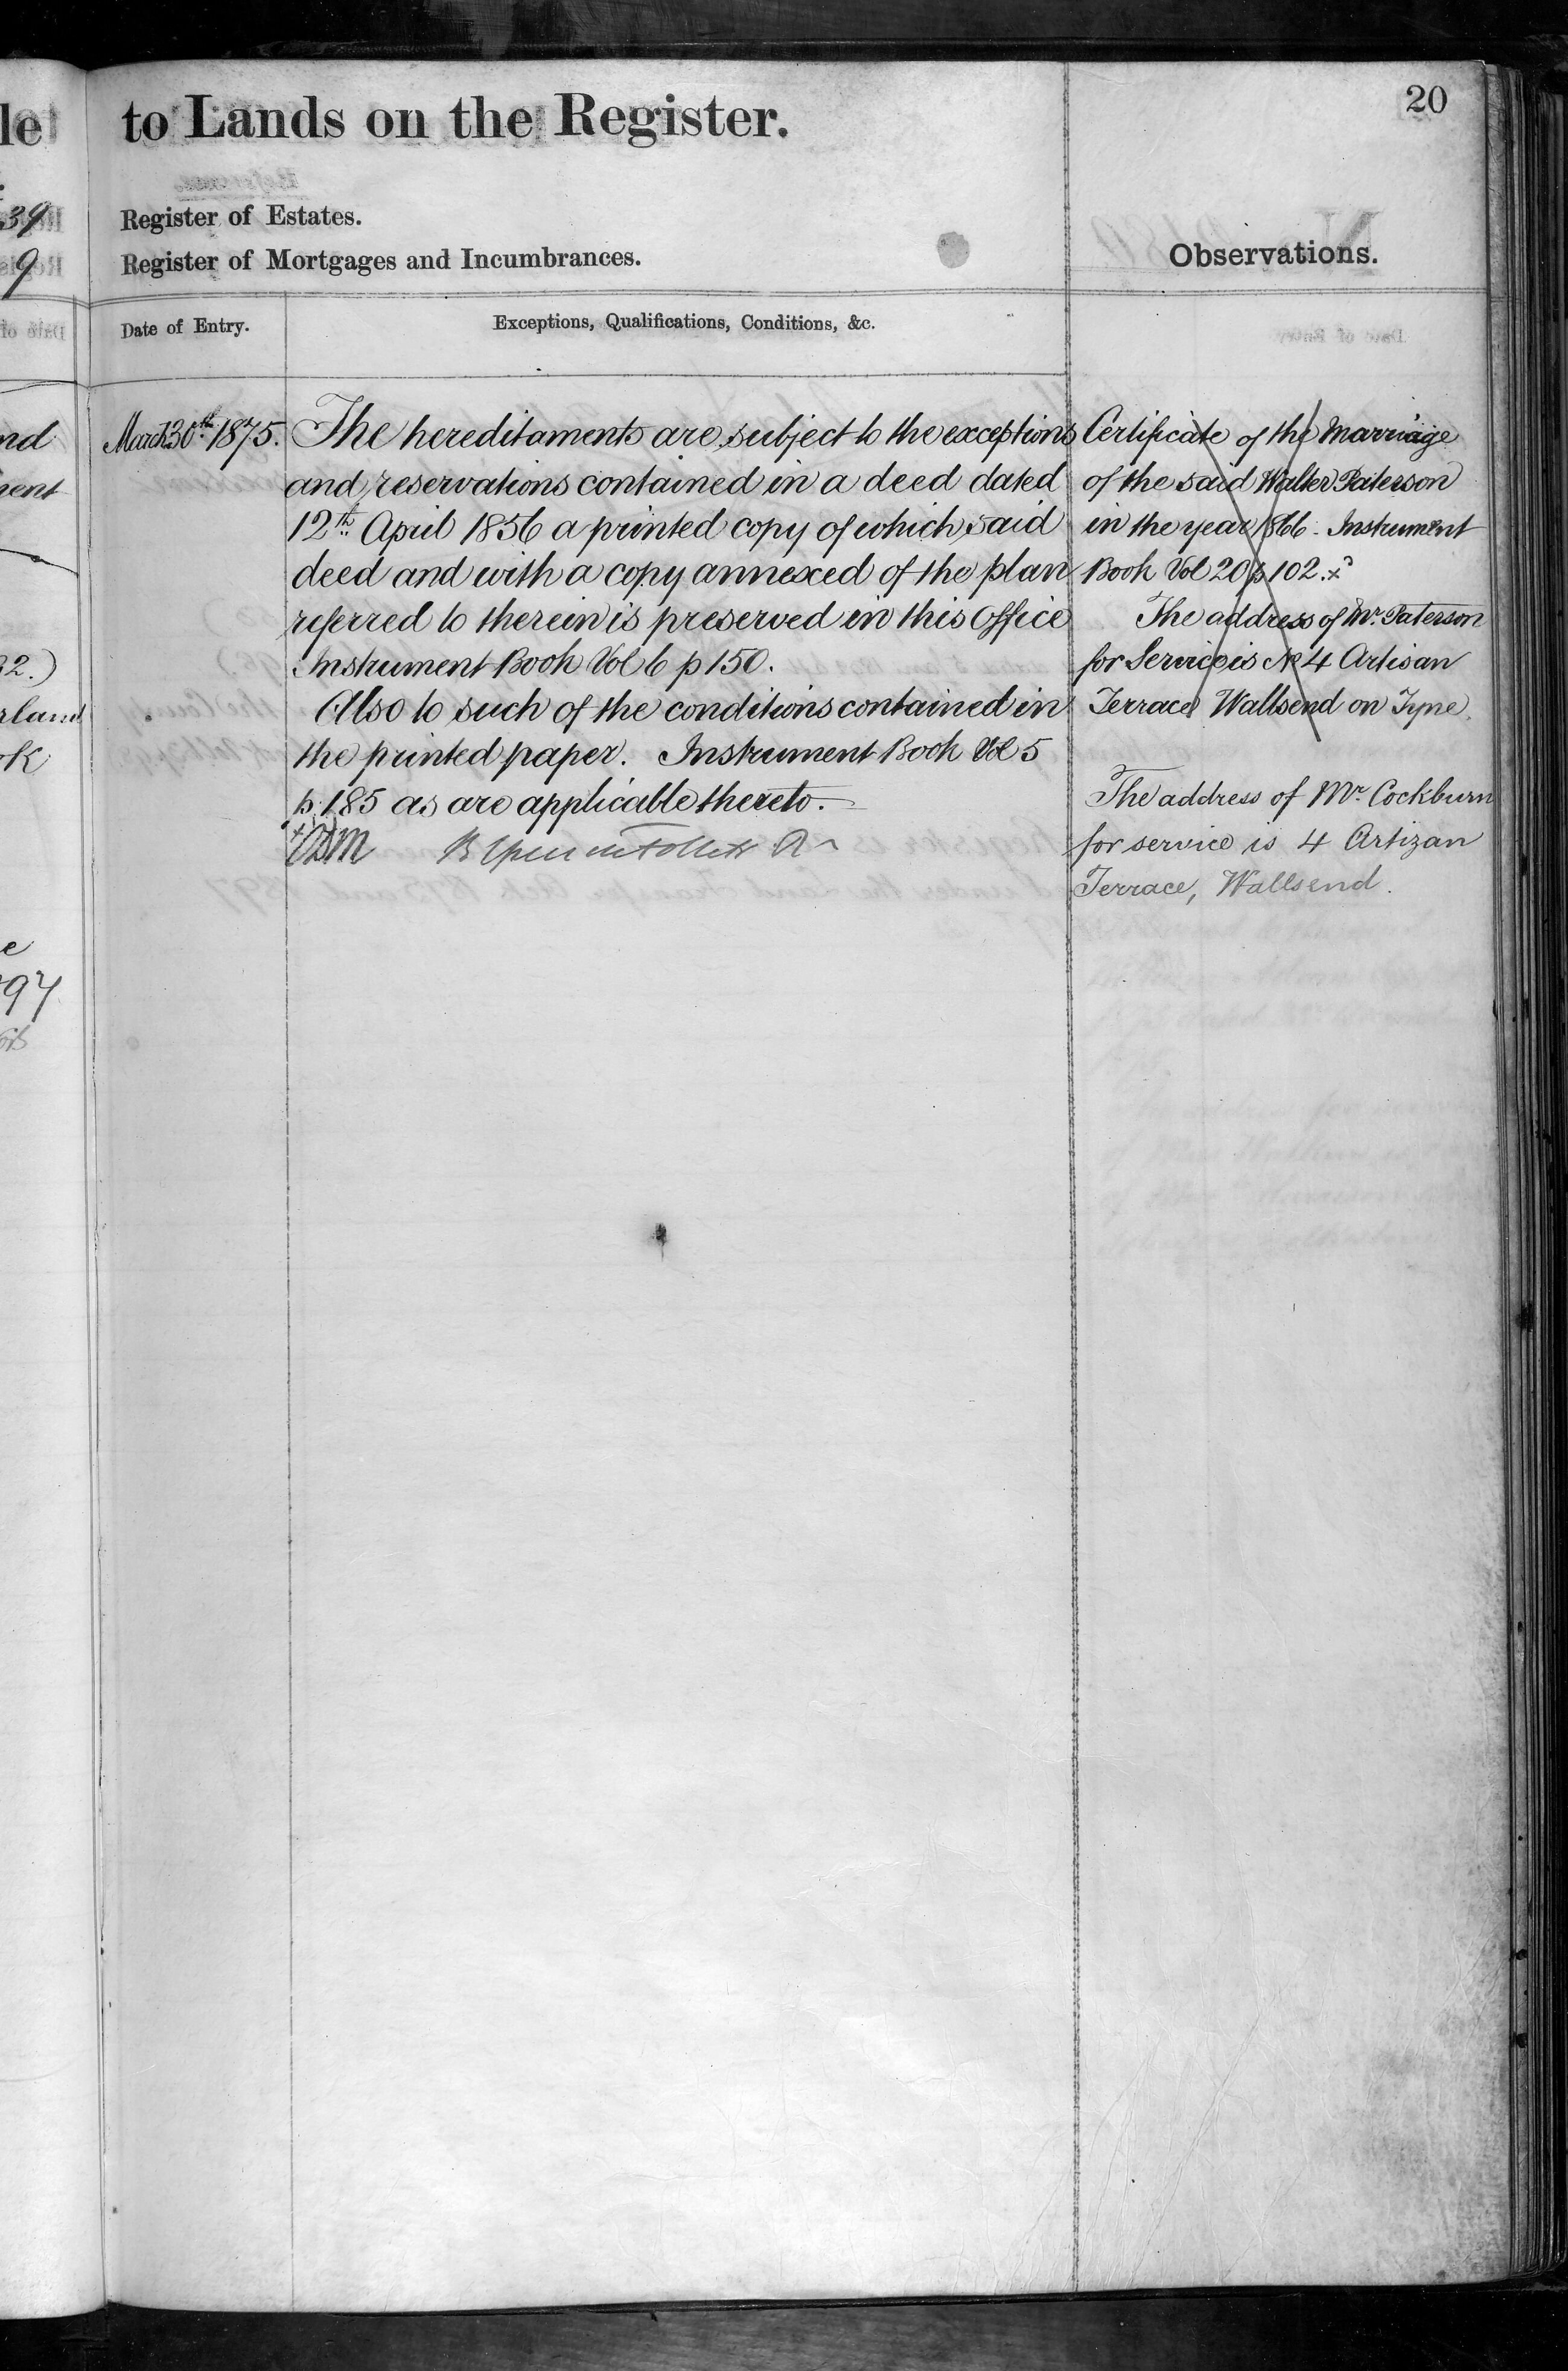 20
to Lands on the Register.
Register of Estates.
Register of Mortgages and Incumbrances.
Observations.
Date of Entry.
Exceptions, Qualifications, Conditions, &c.
March 30th 1875.
The hereditaments are subject to the exceptions
and reservations contained in a deed dated
12th April 1856 a printed copy of which said
deed and with a copy annexed of the plan
referred to therein is preserved in this Office
Instrument Book Vol 6 p 150.
Also to such of the conditions contained in
the printed paper. Instrument Book Vol 5
p. 185 as are applicable thereto.
Certificate of the Marriage
of the said Walter Paterson
in the year 1866. Instrument
Book Vol 20 p 102.
The address of Mr. Paterson
for Service is No 4 Artisan
Terrace Wallsend on Tyne.
The address of Mr. Cockburn
for service is 4 Artizan
Terrace, Wallsend.
le
39
9
nd
ent
32.)
rland
ok
e
97